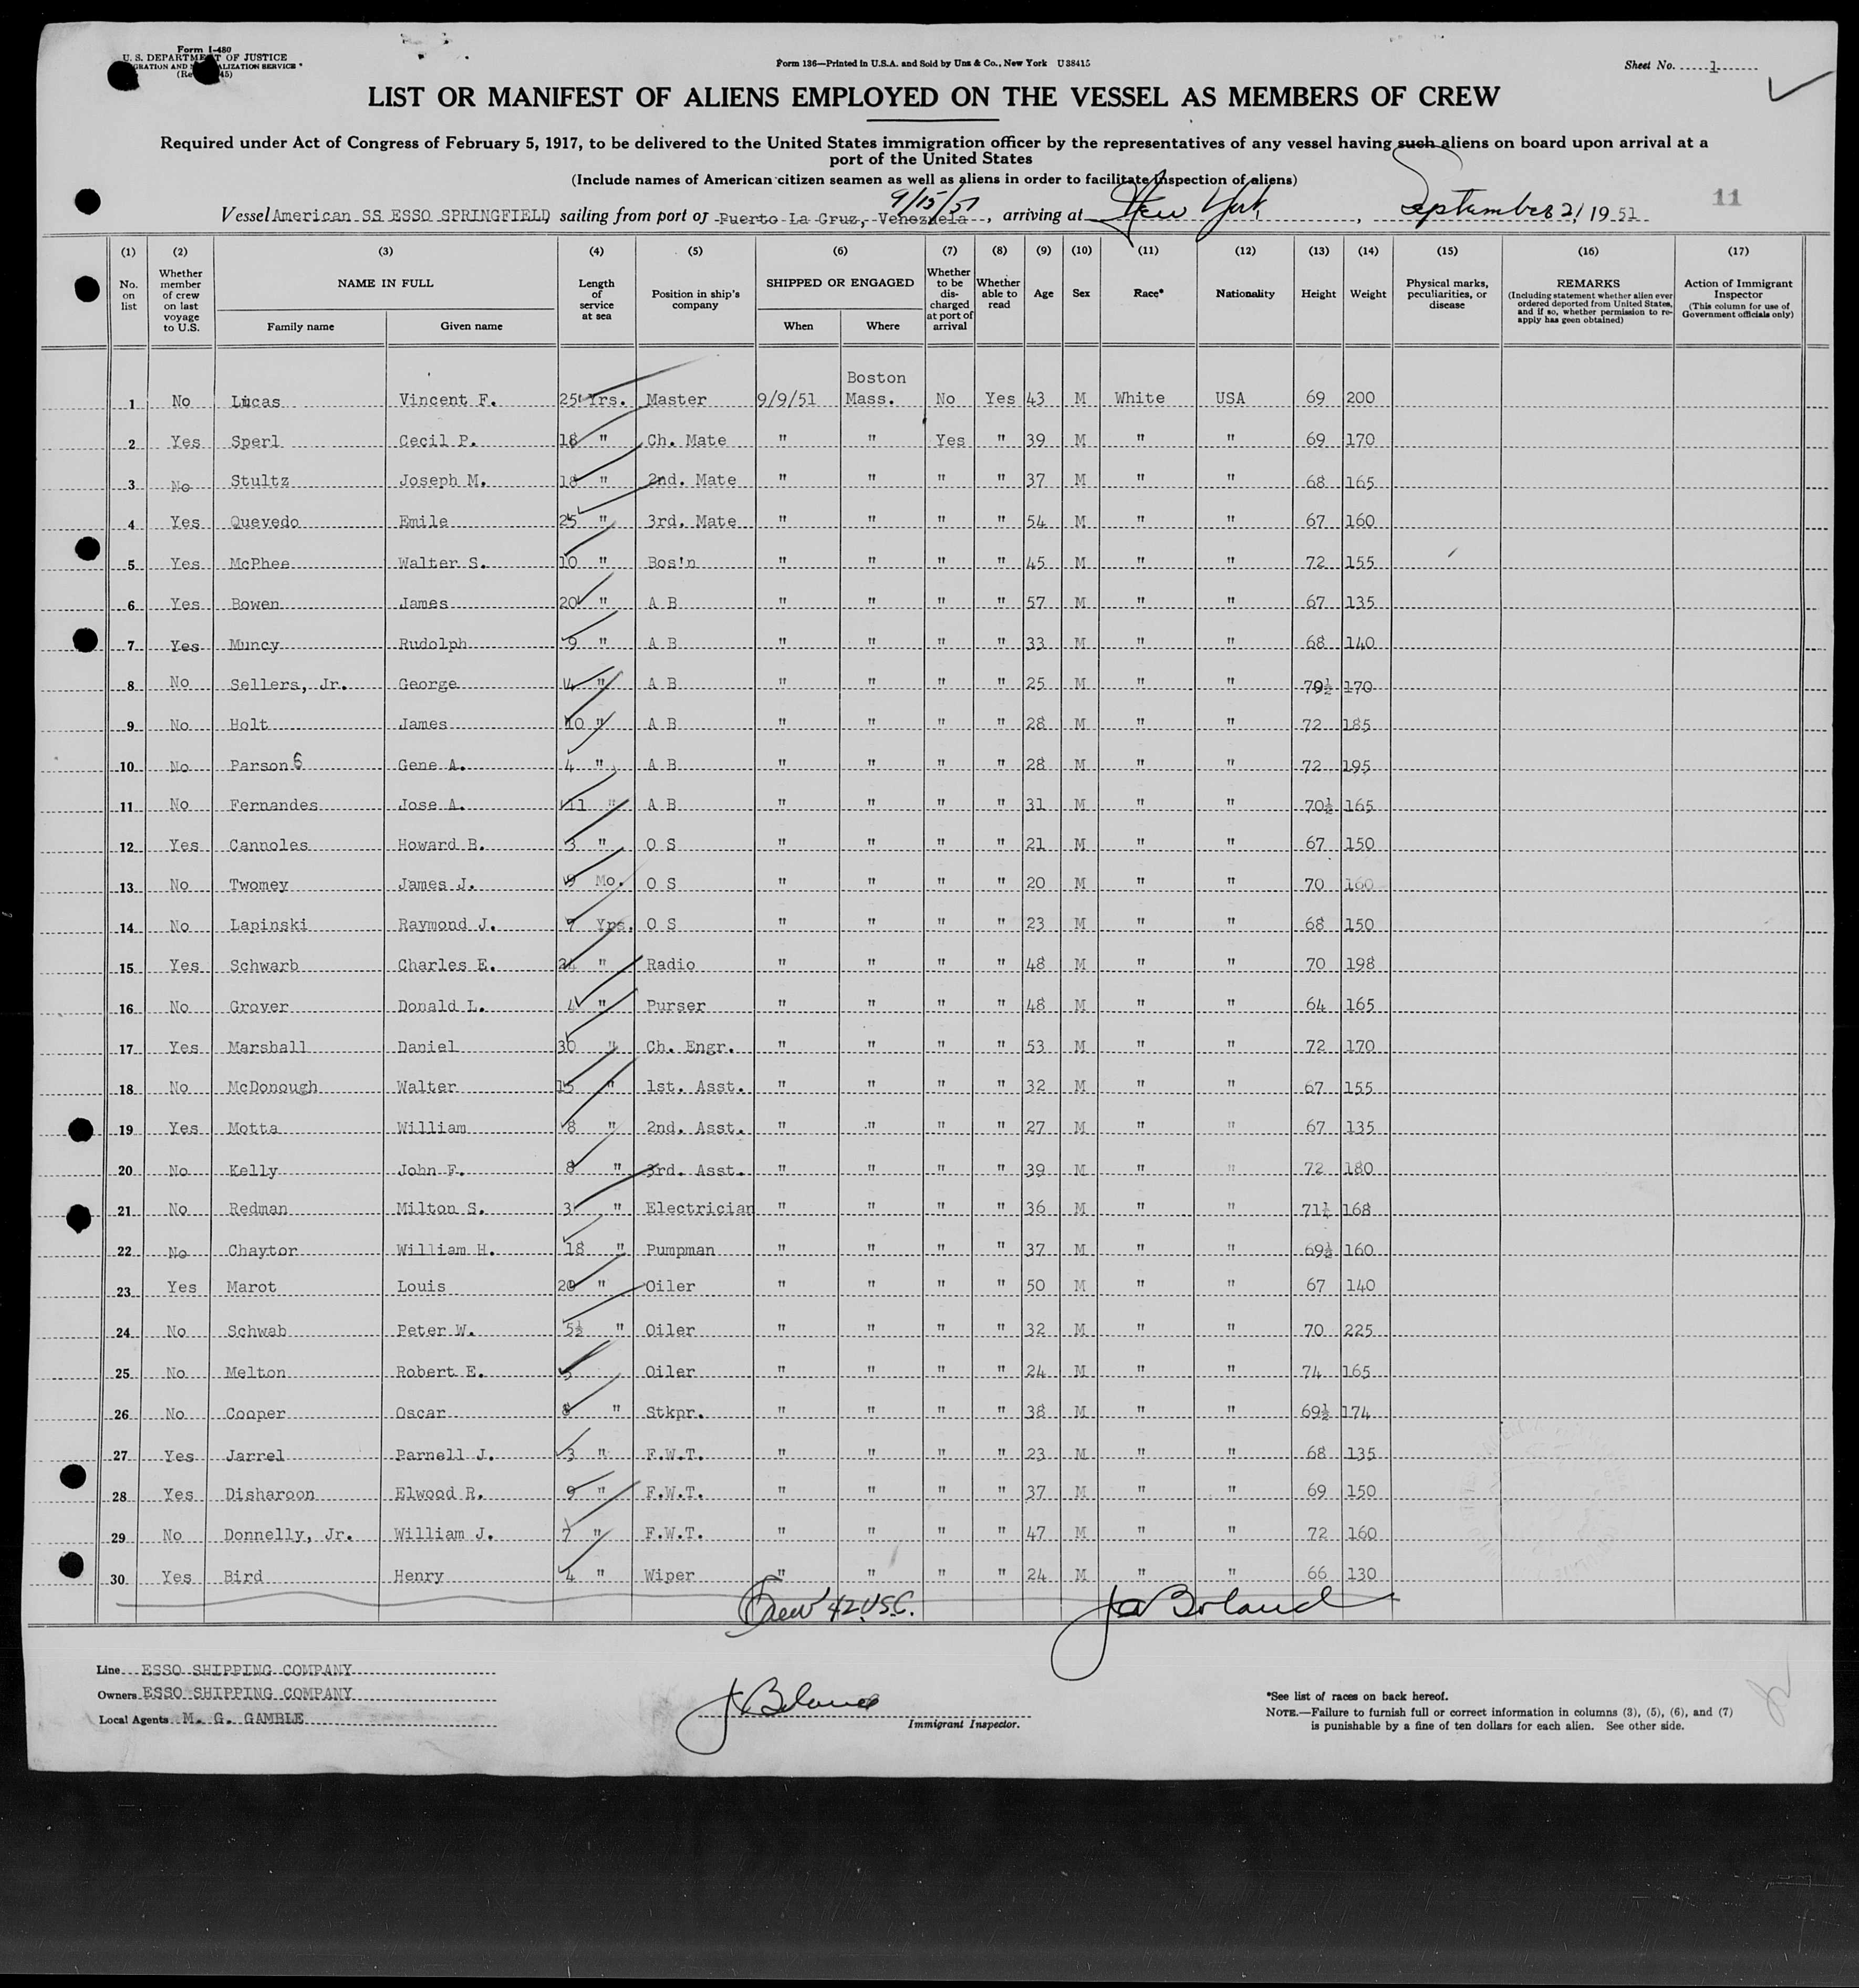 Form I-480
U. S. DEPARTMENT OF JUSTICE
IMMIGRATION AND NATURALIZATION SERVICE
Form 136—Printed in U.S.A. and Sold by Unz & Co., New York U38415
Sheet No. 1
LIST OR MANIFEST OF ALIENS EMPLOYED ON THE VESSEL AS MEMBERS OF CREW
Required under Act of Congress of February 5, 1917, to be delivered to the United States immigration officer by the representatives of any vessel having such aliens on board upon arrival at a
port of the United States
(Include names of American citizen seamen as well as aliens in order to facilitate inspection of aliens)
9/15/51
Vessel American SS ESSO SPRINGFIELD sailing from port of Puerto La Cruz, Venezuela, arriving at New York, September 21 1951
11
(1) (2) (3) (4) (5) (6) (7) (8) (9) (10) (11) (12) (13) (14) (15) (16) (17)
No. on list Whether member of crew on last voyage to U.S. NAME IN FULL Family name Given name Length of service at sea Position in ship's company SHIPPED OR ENGAGED When Where Whether to be discharged at port of arrival Whether able to read Age Sex Race* Nationality Height Weight Physical marks, peculiarities, or disease REMARKS (Including statement whether alien ever ordered deported from United States, and if so, whether permission to re-apply has geen obtained) Action of Immigrant Inspector (This column for use of Government officials only)
1 No Lucas Vincent F. 25 Yrs. Master 9/9/51 Boston Mass. No Yes 43 M White USA 69 200
2 Yes Sperl Cecil P. 18 " Ch. Mate " " Yes " 39 M " " 69 170
3 No Stultz Joseph M. 18 " 2nd. Mate " " " " 37 M " " 68 165
4 Yes Quevedo Emile 25 " 3rd. Mate " " " " 54 M " " 67 160
5 Yes McPhee Walter S. 10 " Bos'n " " " " 45 M " " 72 155
6 Yes Bowen James 20 " A B " " " " 57 M " " 67 135
7 Yes Muncy Rudolph 9 " A B " " " " 33 M " " 68 140
8 No Sellers, Jr. George 4 " A B " " " " 25 M " " 70½ 170
9 No Holt James 10 " A B " " " " 28 M " " 72 185
10 No Parson Gene A. 4 " A B " " " " 28 M " " 72 195
11 No Fernandes Jose A. 11 " A B " " " " 31 M " " 70½ 165
12 Yes Cannoles Howard B. 3 " O S " " " " 21 M " " 67 150
13 No Twomey James J. 9 Mo. O S " " " " 20 M " " 70 160
14 No Lapinski Raymond J. 7 Yrs. O S " " " " 23 M " " 68 150
15 Yes Schwarb Charles E. " Radio " " " " 48 M " " 70 198
16 No Grover Donald L. 4 " Purser " " " " 48 M " " 64 165
17 Yes Marshall Daniel 30 " Ch. Engr. " " " " 53 M " " 72 170
18 No McDonough Walter 15 " 1st. Asst. " " " " 32 M " " 67 155
19 Yes Motta William 8 " 2nd. Asst. " " " " 27 M " " 67 135
20 No Kelly John F. 8 " 3rd. Asst. " " " " 39 M " " 72 180
21 No Redman Milton S. 3 " Electrician " " " " 36 M " " 71½ 168
22 No Chaytor William H. 18 " Pumpman " " " " 37 M " " 69½ 160
23 Yes Marot Louis 20 " Oiler " " " " 50 M " " 67 140
24 No Schwab Peter W. 5½ " Oiler " " " " 32 M " " 70 225
25 No Melton Robert E. Oiler " " " " 24 M " " 74 165
26 No Cooper Oscar 8 " Stkpr. " " " " 38 M " " 69½ 174
27 Yes Jarrel Parnell J. 3 " F.W.T. " " " " 23 M " " 68 135
28 Yes Disharoon Elwood R. 9 " F.W.T. " " " " 37 M " " 69 150
29 No Donnelly, Jr. William J. 7 " F.W.T. " " " " 47 M " " 72 160
30 Yes Bird Henry 4 " Wiper " " " " 24 M " " 66 130
Crew 42 U.S.C. Ja Boland
Line ESSO SHIPPING COMPANY
Owners ESSO SHIPPING COMPANY
Local Agents M. G. GAMBLE
J Boland
Immigrant Inspector.
*See list of races on back hereof.
NOTE.—Failure to furnish full or correct information in columns (3), (5), (6), and (7)
is punishable by a fine of ten dollars for each alien. See other side.